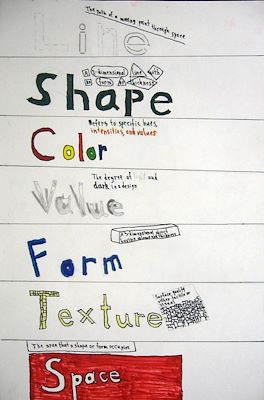 The path of a moving point through space
Line
A 2-dimensional line with
no form or thickness
Shape
Refers to specific hues,
intensities, and values
Color
The degree of light and
dark in a design
Value
A 3-dimensional object
having volume and thickness
Form
Surface quality
Texture
The area that a shape or form occupies
Space